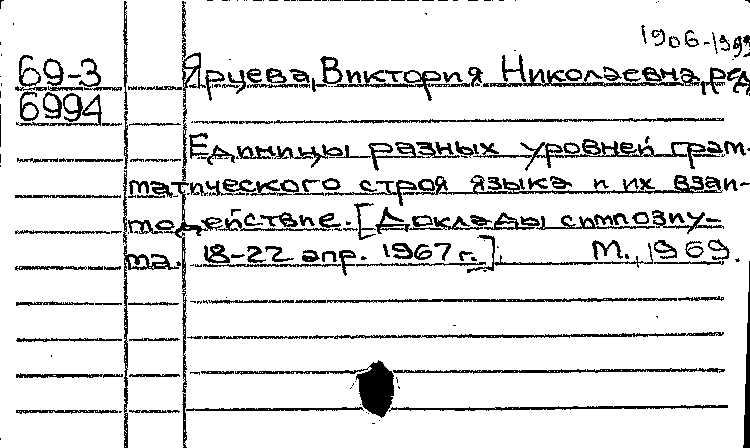 1906-1999
69-3
Ярцева, Виктория Николаевна, ред.
6994
Единицы разных уровней грам-
матического строя языка и их взаи-
модействие. [Доклады симпозиу-
ма. 18-22 апр. 1967 г.]. М., 1969.